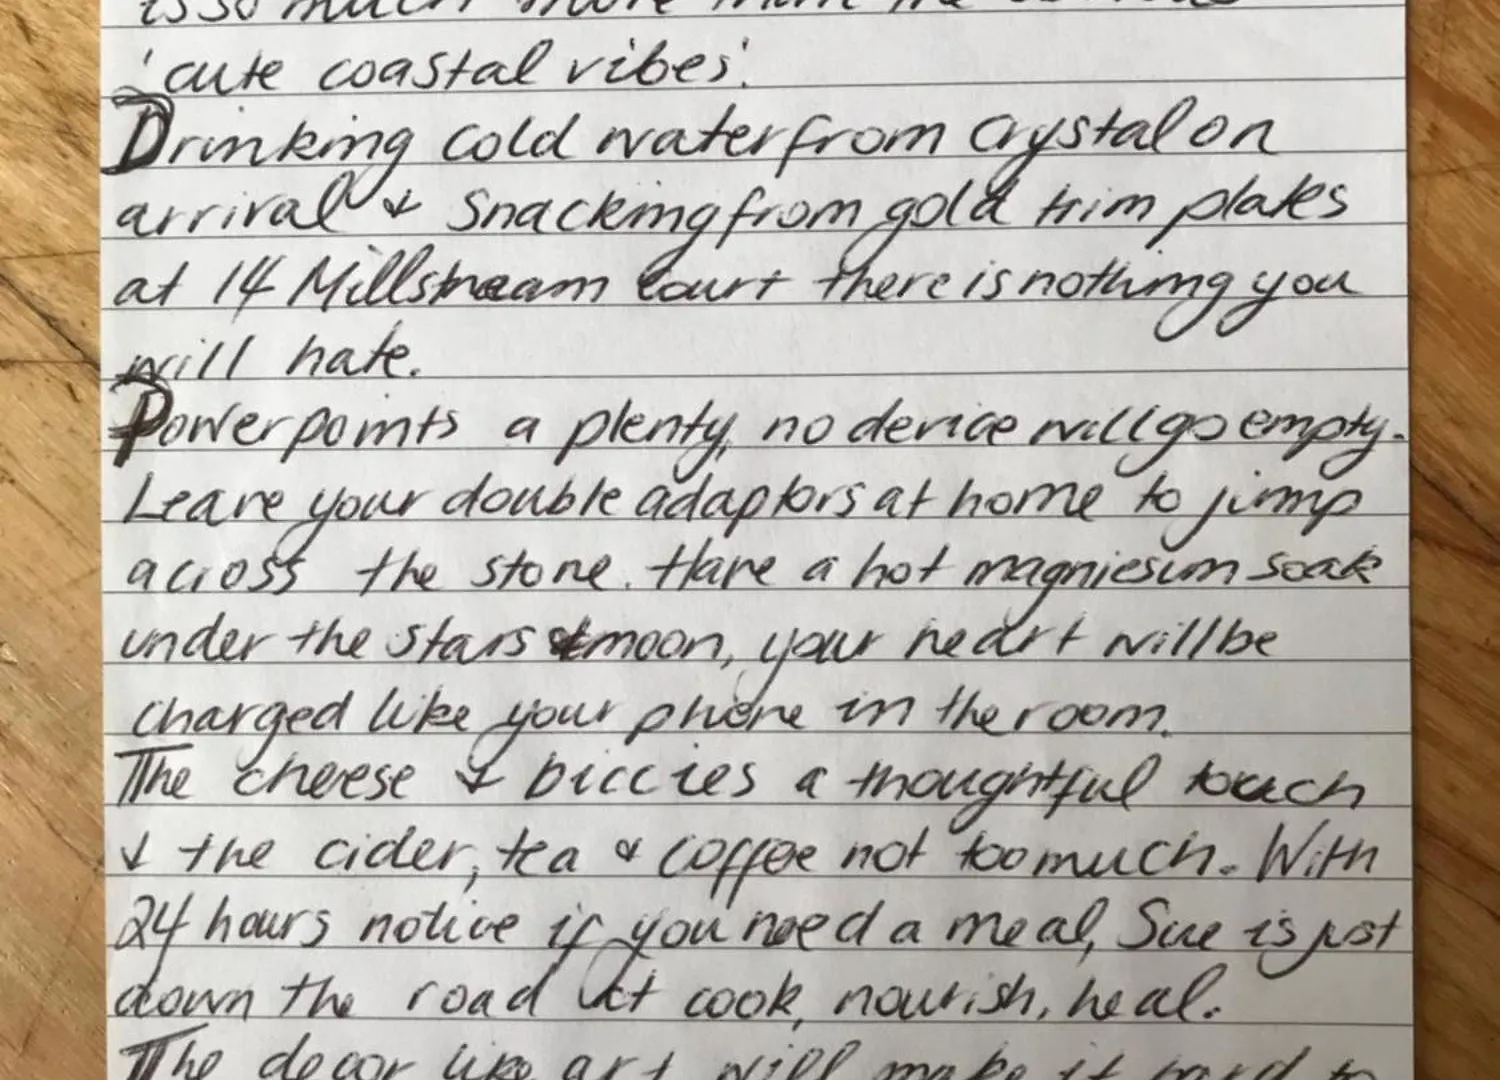 is so much more than the
'cute coastal vibes'.
Drinking cold water from crystal on
arrival & snacking from gold trim plates
at 14 Millstream Court there is nothing you
will hate.
Powerpoints a plenty, no device will go empty.
Leave your double adaptors at home to jump
across the stone. Have a hot magniesium soak
under the stars & moon, your heart will be
charged like your phone in the room.
The cheese & biccies a thoughtful touch
& the cider, tea & coffee not too much. With
24 hours notice if you need a meal, Sue is just
down the road at cook, nourish, heal.
The decor like art will make it hard to